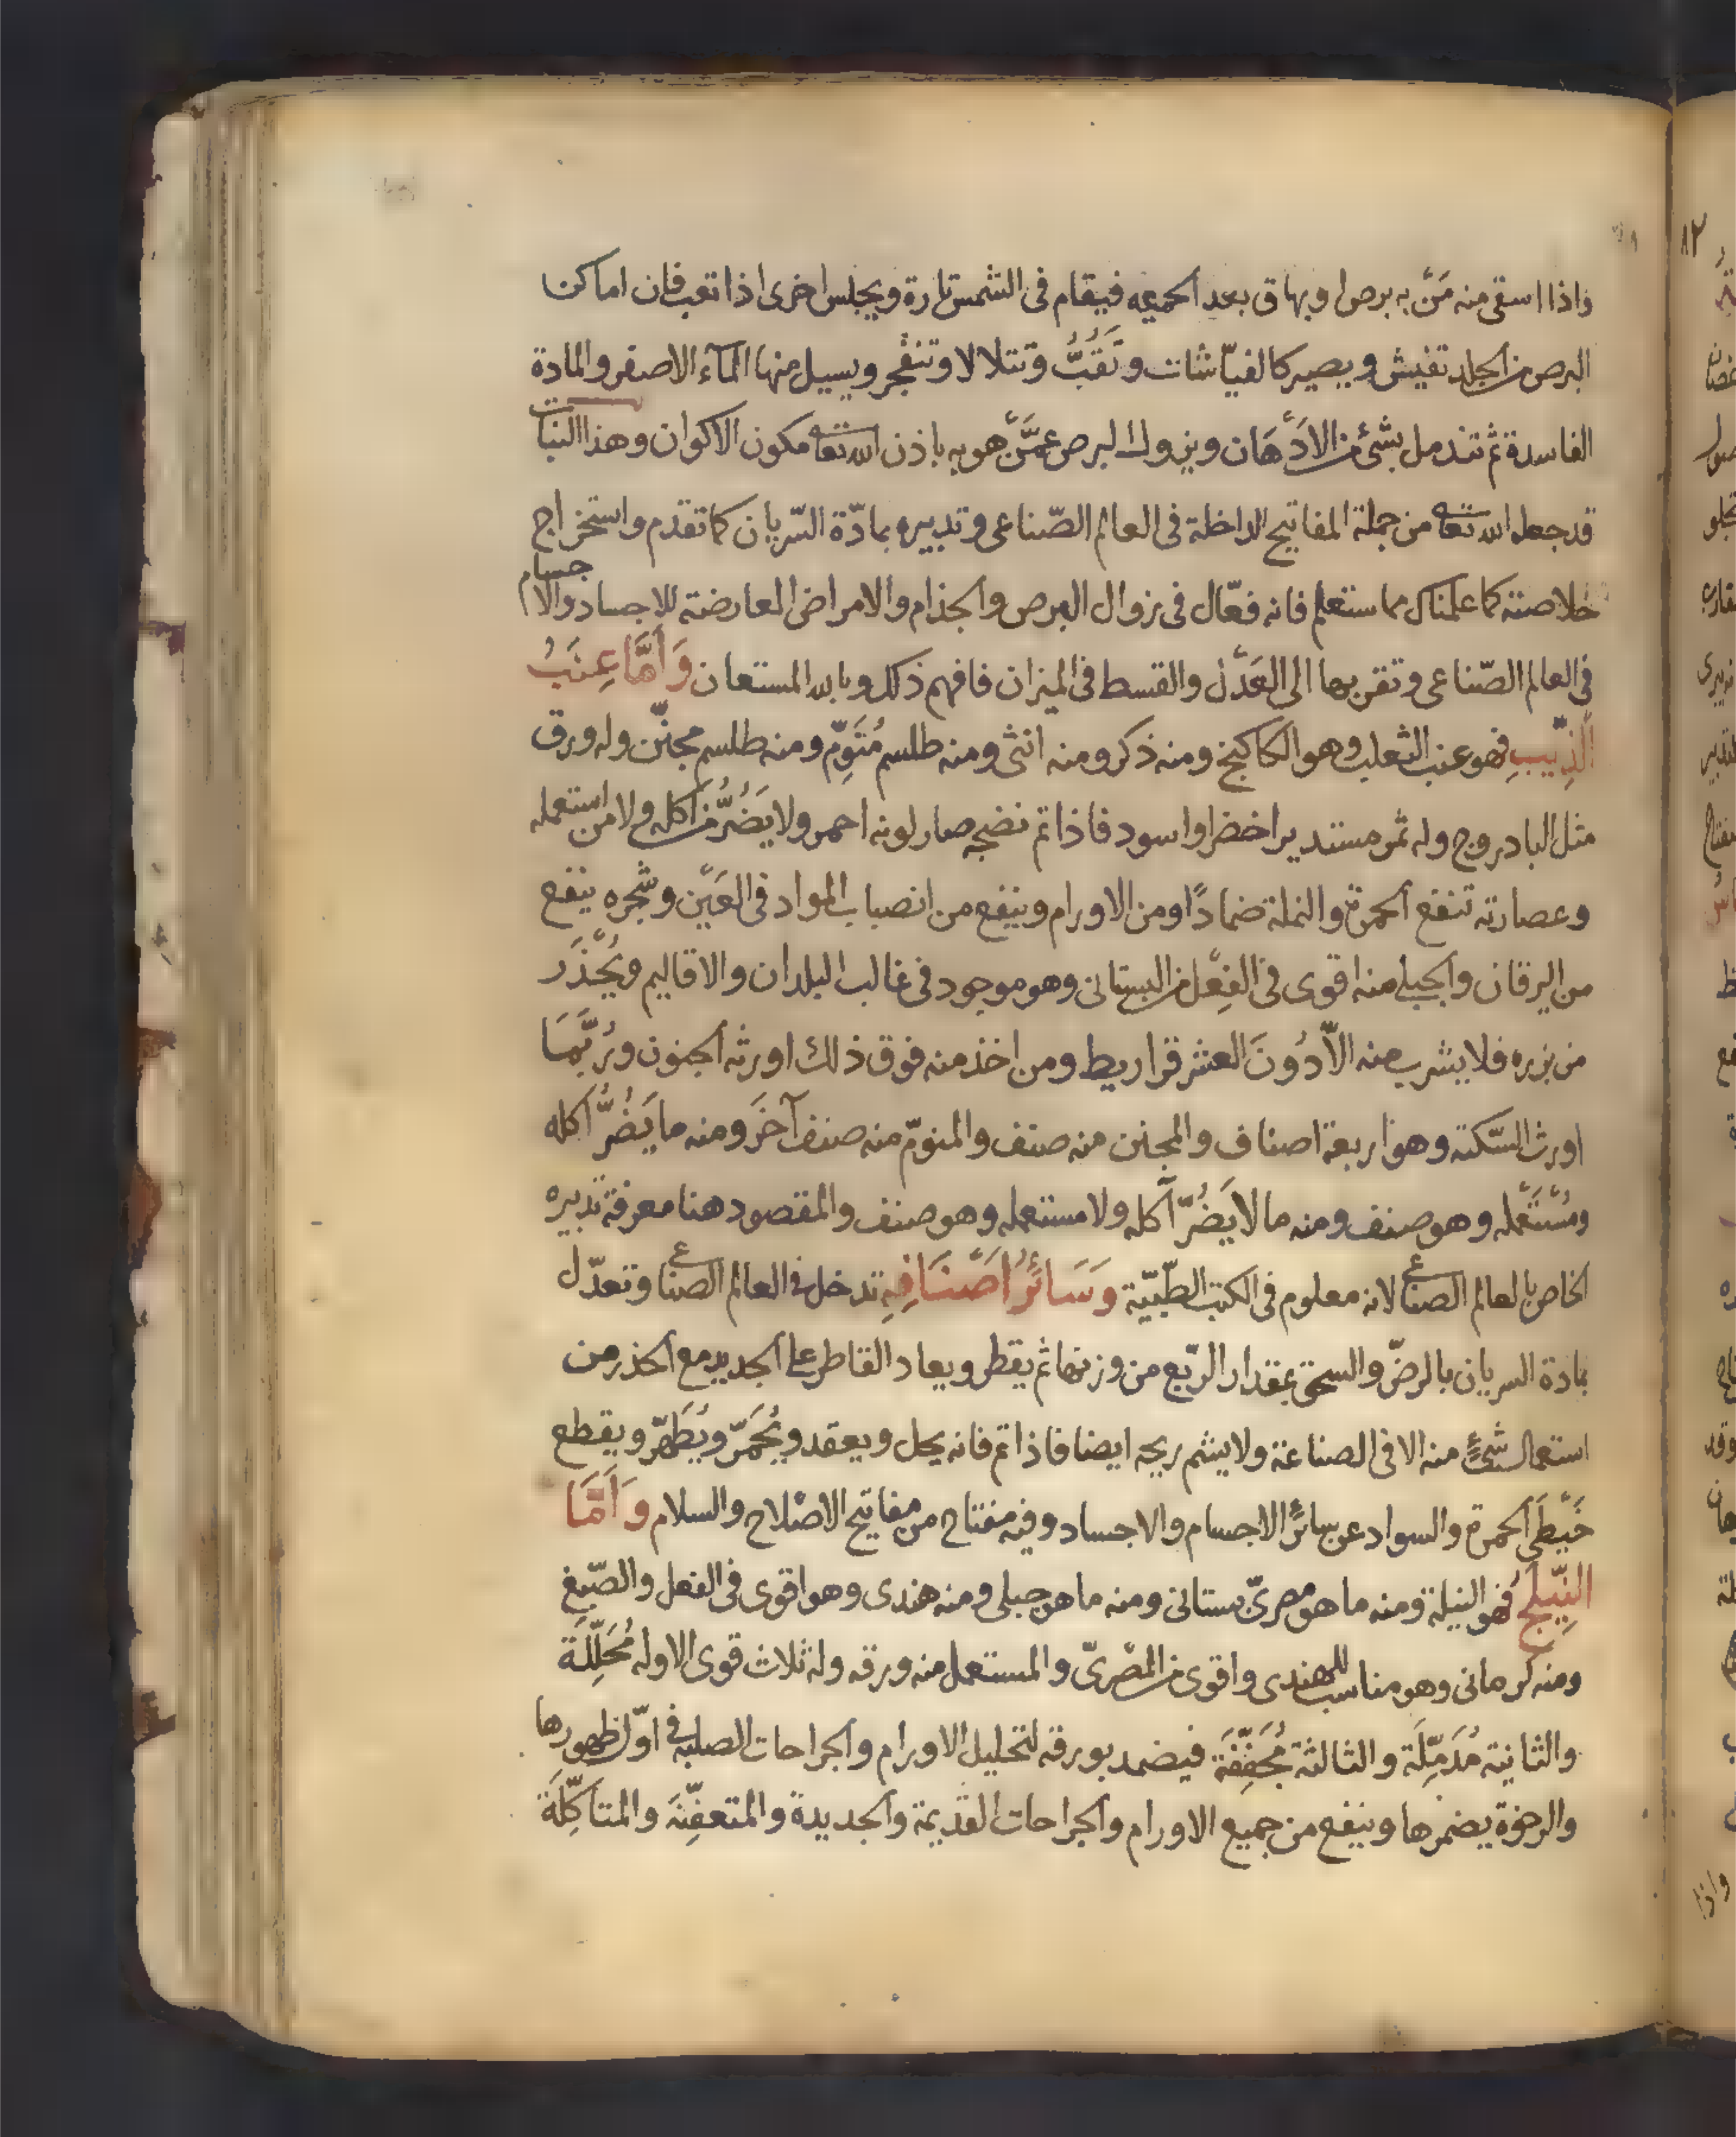 واذا اسقى منه مَنْ به برص او بهاق بعد الحميه فيقام فى الشمس تارة ويجلس اخرى اذا تعب فان اماكن
البرص من الجلد تفيش ويصير كالفيّاشات وتَقُبُّ وتتلالا وتنفجر ويسيل منها المآء الاصفر والمادة
الفاسدة ثم تندمل بشئ من الادْهَان ويزول البرص عمَّنْ هو به باذن الله تعا مكون الاكوان وهذا النبات
قد جعله الله تعا من جملة المفاتيح الداخلة فى العالم الصّناعى وتدبيره بمادّة السّريان كما تقدم واستخراج
خلاصته كما علمناك مما ستعلم فانه فعّال فى زوال البرص والجذام والامراض المعارضته للاجساد والاجسام
فى العالم الصّناعى وتقربها الى العَدْل والقسط فى الميزان فافهم ذلك وبالله المستعان وَأَمَّا عِنَبُ
الذِّيبِ فهو عنب الثعلب وهو الكاكنج ومنه ذكر ومنه انثى ومنه طلسم مُنَوِّم ومنه طلسم مجنّن وله ورق
مثل البادروج وله ثمر مستدير اخضر او اسود فاذا تم نضجه صار لونه احمر ولا يَضُرُّ من اكله ولا من استعمله
وعصارته تنفع الحمرة والنملة ضمادًا ومن الاورام وينفع من انصباب المواد فى العَيْن وشجره ينفع
من اليرقان والجبلى منه اقوى فى الفِعْل من البستانى وهو موجود فى غالب البلدان والاقاليم ويُحْذَر
من بزره فلا يشرب منه الاّ دُونَ العشر قراريط ومن اخذ منه فوق ذلك اورثه الجنون ورُبَّمَا
اورث السّكتة وهو اربعة اصناف والمجنن منه صنف والمنوّم منه صنف آخَر ومنه ما يَضُرُّ آكله
ومُسْتَعْمله وهو صنف ومنه ما لا يَضُرّ آكله ولا مستعمله وهو صنف والمقصود هنا معرفة تدبيره
الخاص بالعالم الصناعى لانه معلوم فى الكتب الطّبّيّة وَسَائِرُ اَصْنَافِهِ تدخل فى العالم الصناعى وتعدّل
بمادة السريان بالرضّ والسحق بمقدار الرّبع من وزنها ثم يقطر ويعاد القاطر على الجديد مع الحذر من
استعمال شئٍ منه الا فى الصناعة ولا يشم ريحه ايضا فاذا تم فانه يحل ويعقد ويُحَمّر ويُطَهّر ويقطع
خَيْطَى الحمرة والسواد عن سائر الاجسام والاجساد وفيه مفتاح من مفاتيح الاصْلاح والسلام وَأَمَّا
النِّيلَج فهو النيلة ومنه ما هو مصرىّ بستانى ومنه ما هو جبلى ومنه هندى وهو اقوى فى الفعل والصّبغ
ومنه كرمانى وهو مناسب للهندى واقوى من المصْرىّ والمستعمل منه ورقه وله ثلاث قوى الاوله مُحَلِّلَة
والثانية مُدَمِّلَة والثالثة مُجَفِّفَة فيضمد بورقه لتحليل الاورام والجراحات الصلبة فى اوّل ظهورها
والرخوة يضمرها وينفع من جميع الاورام والجراحات القديمة والجديدة والمتعفِّنَة والمتآكِّلَة